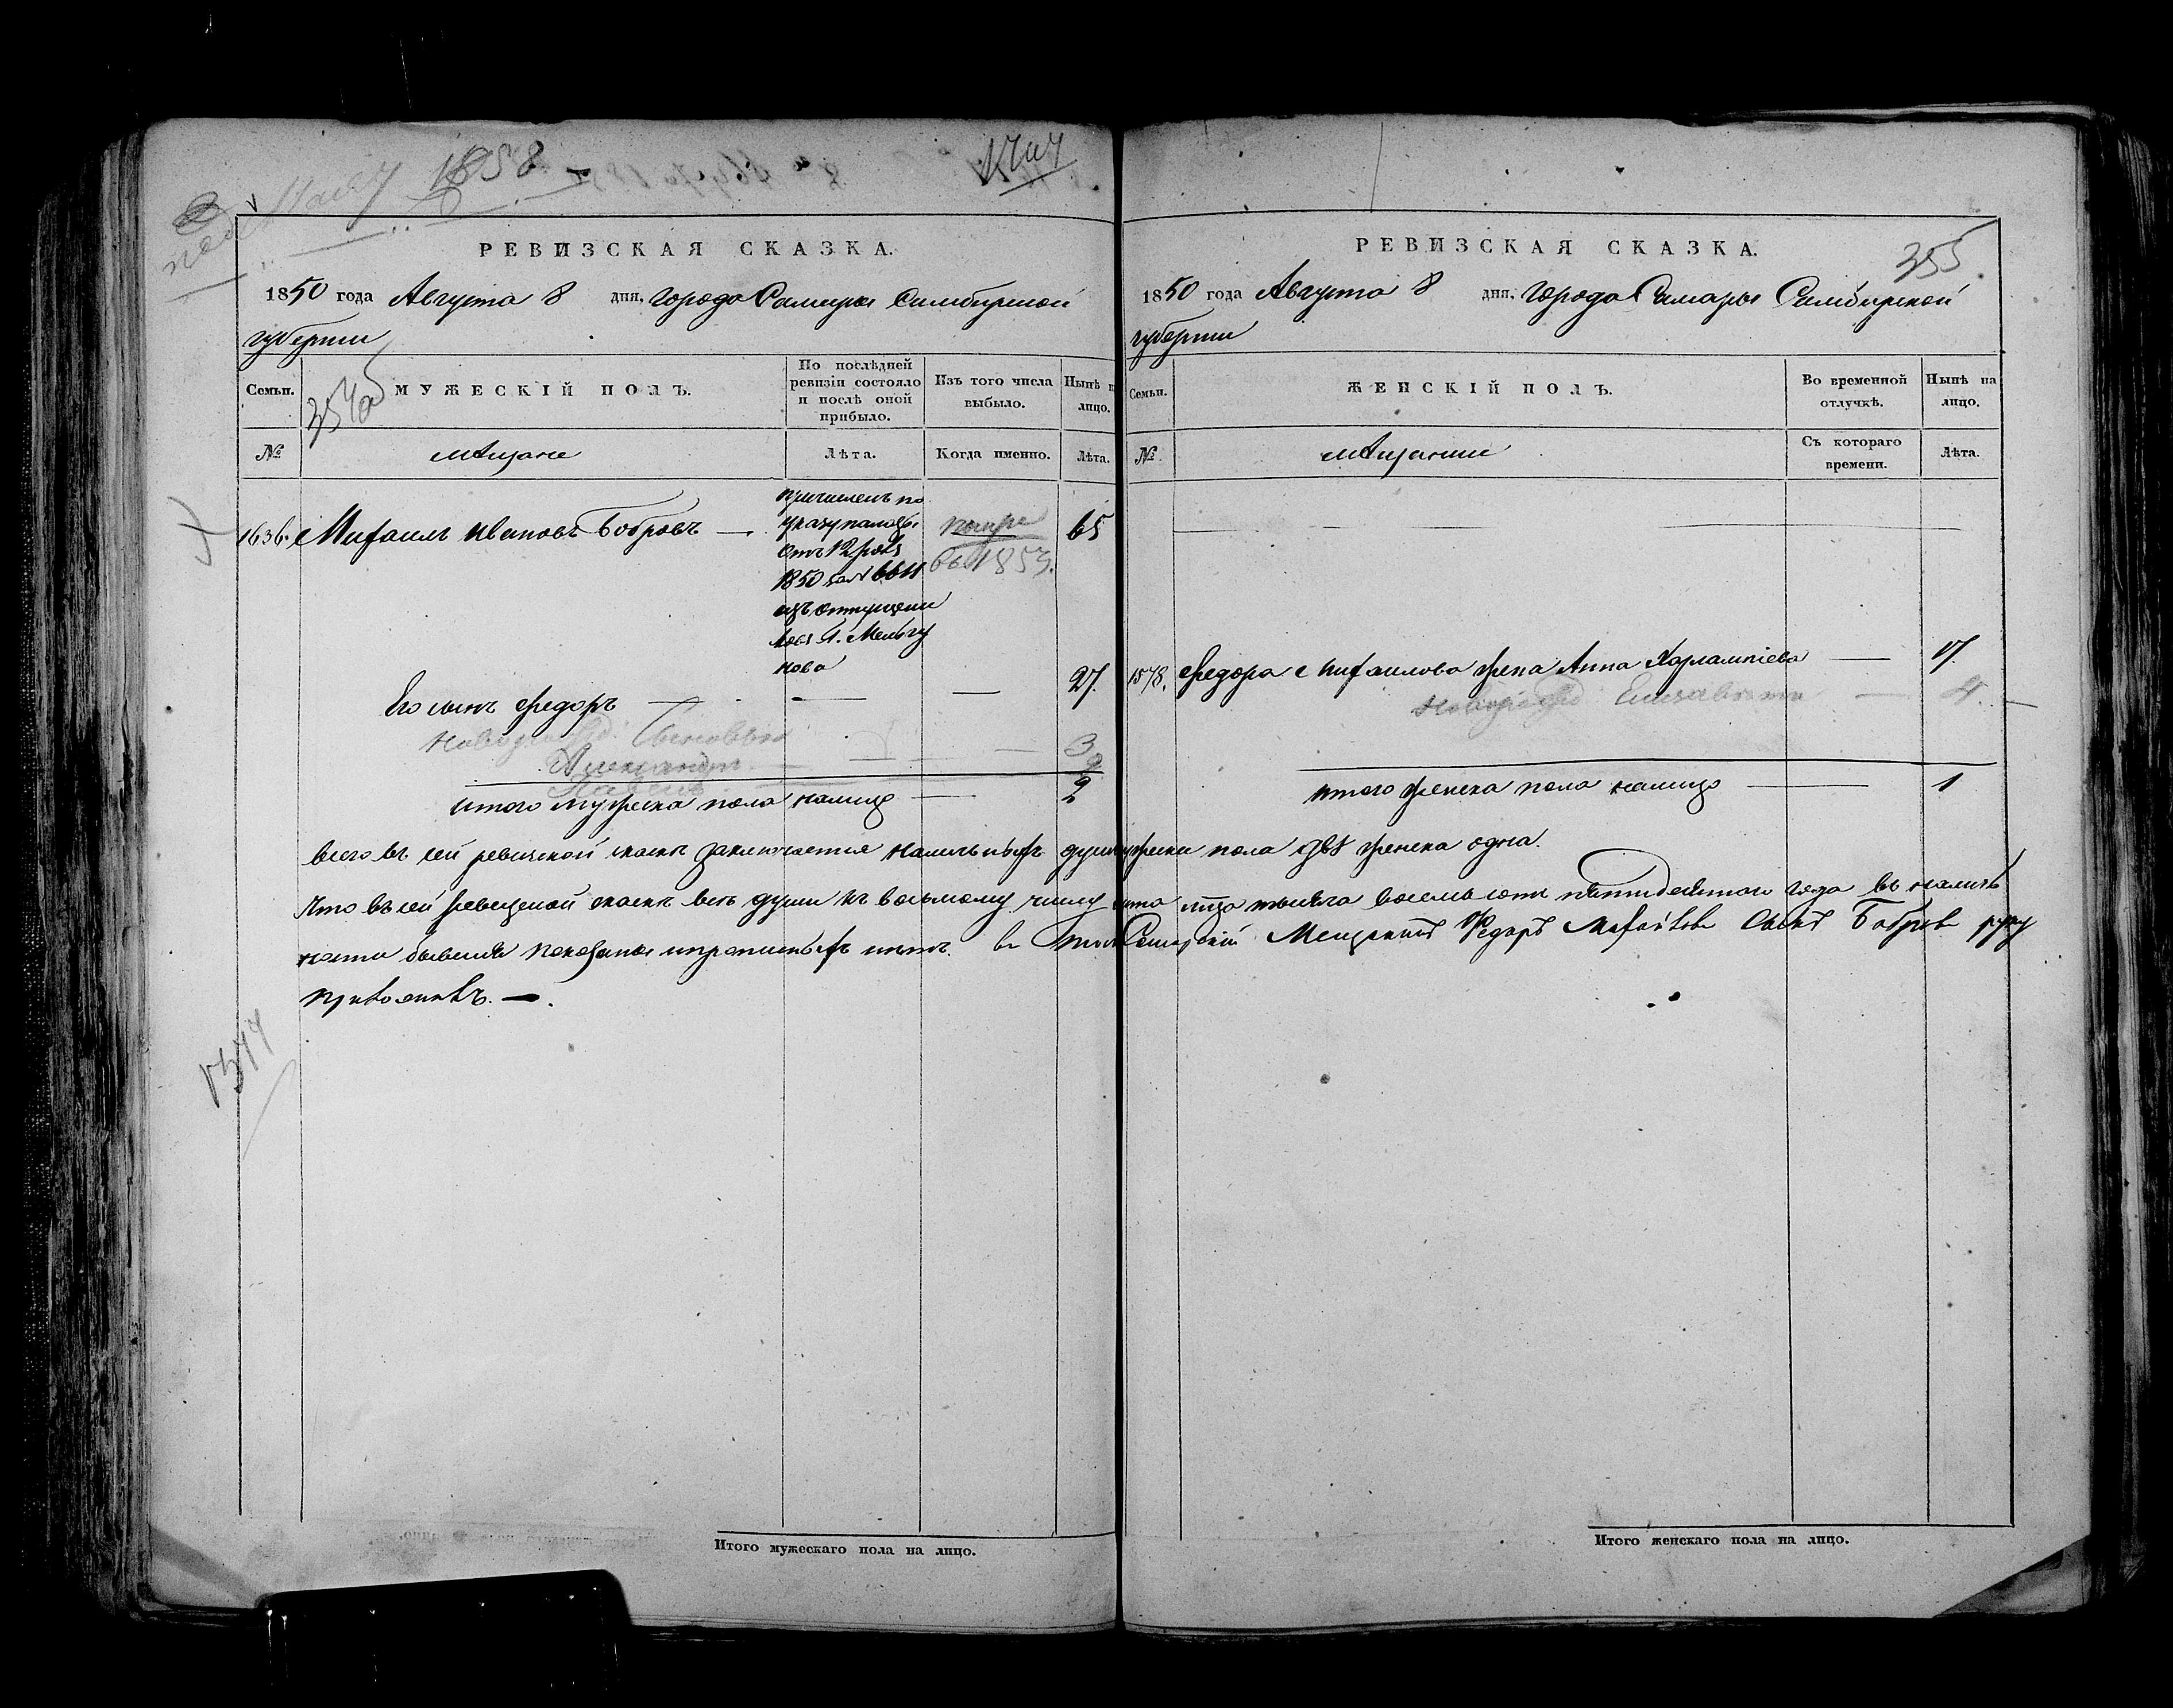 1858
РЕВИЗСКАЯ СКАЗКА.
1850 года Августа 8 дня, города Самары Симбирской
губернии
Семьи.
МУЖЕСКІЙ ПОЛЪ.
По послѣдней ревизіи состояло и послѣ оной прибыло.
Изъ того числа выбыло.
Нынѣ на лицо.
№
мѣщане
Лѣта.
Когда именно.
Лѣта.
1636. Михаилъ Ивановъ Бобровъ — 65
причисленъ по
указу палаты
отъ 12
1850 за № 6611
изъ отпущен
ново
помре
въ 1853.
Его сынъ Федоръ — — — 27.
новорожд. Сыновья
Александръ 3
Павелъ 2
итого мужеска пола налицо — 2
РЕВИЗСКАЯ СКАЗКА.
355.
1850 года Августа 8 дня, города Самары Симбирской
губернии
Семьи.
ЖЕНСКІЙ ПОЛЪ.
Во временной отлучкѣ.
Нынѣ на лицо.
№
мѣщанки
Съ котораго времени.
Лѣта.
1578. Федора Михаилова жена Анна Харлампіева — 17.
новорожд Елизавета — 4.
итого женска пола налицо — 1
всего въ сей ревизской сказкѣ заключается наличныхъ душъ мужеска пола двѣ женска одна.
Что въ сей ревизской сказкѣ всѣ души къ восьмому числу тысяча восемь сотъ пятидесятаго года въ налич
ности бывшія показаны и прописныхъ нѣтъ. въ томъ Самарскій Мещанинъ Федоръ Михайловъ Сынъ Бобровъ руку
приложилъ. —.
Итого мужескаго пола на лицо.
Итого женскаго пола на лицо.